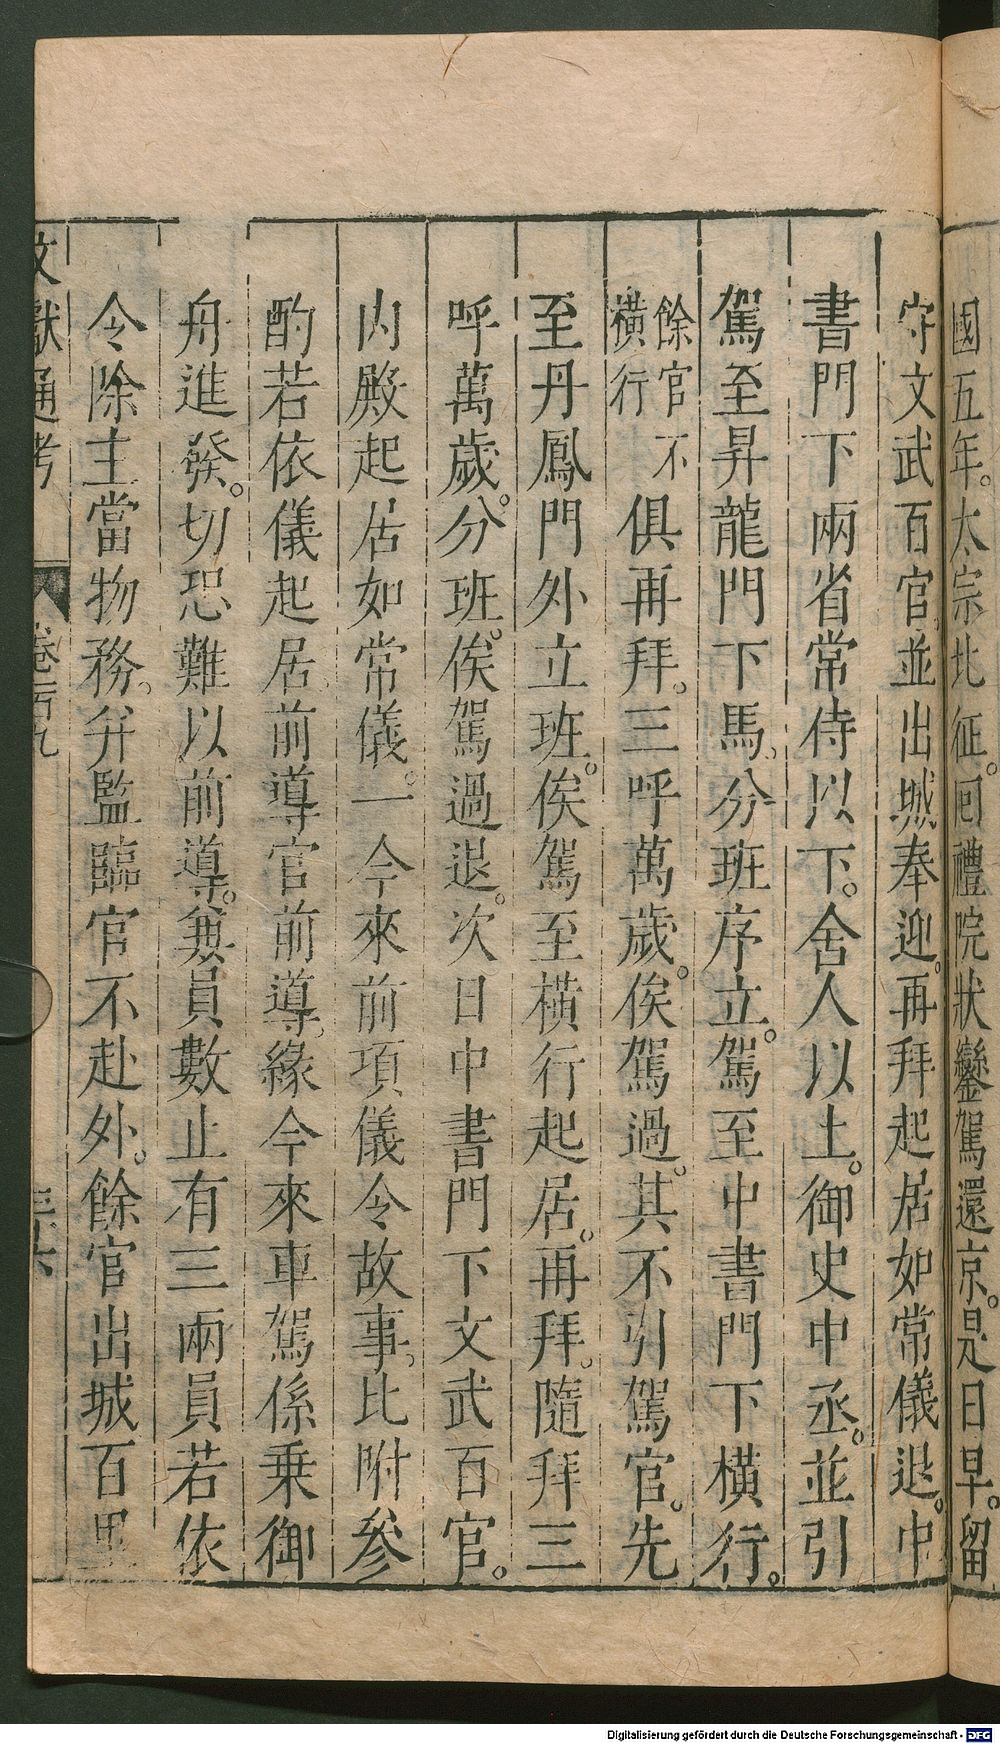 國五年。太宗北征。回禮院狀鑾駕還京。是日早。留
守文武百官。並出城奉迎。再拜起居如常儀退。中
書門下兩省常侍以下。舍人以上。御史中丞。並引
駕至昇龍門下馬。分班序立。駕至中書門下橫行。
餘官不
橫行
俱再拜。三呼萬歲。俟駕過。其不引駕官。先
至丹鳳門外立班。俟駕至橫行起居。再拜。隨拜三
呼萬歲。分班。俟駕過退。次日中書門下文武百官。
內殿起居如常儀。一今來前項儀令故事。比附參
酌若依儀起居。前導官前導。緣今來車駕係乗御
舟進發。切恐難以前導。兼員數止有三兩員若依
令除主當物務。并監臨官不赴外。餘官出城百里
文獻通考
卷百九
三十六
Digitalisierung gefördert durch die Deutsche Forschungsgemeinschaft - DFG